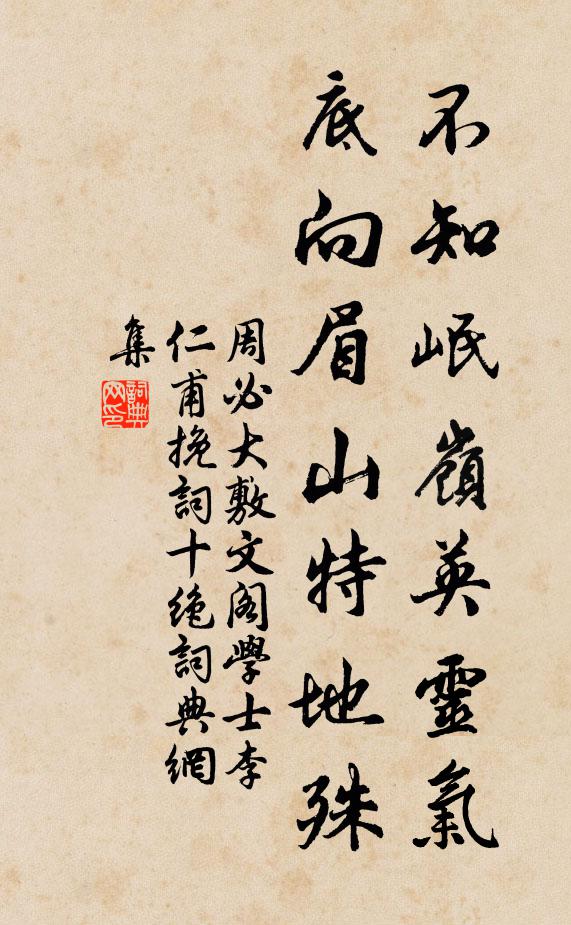 不知岷嶺英靈氣
底向眉山特地殊
周必大敷文閣學士李
仁甫挽詞十絶詞典網
集
詞典
网印